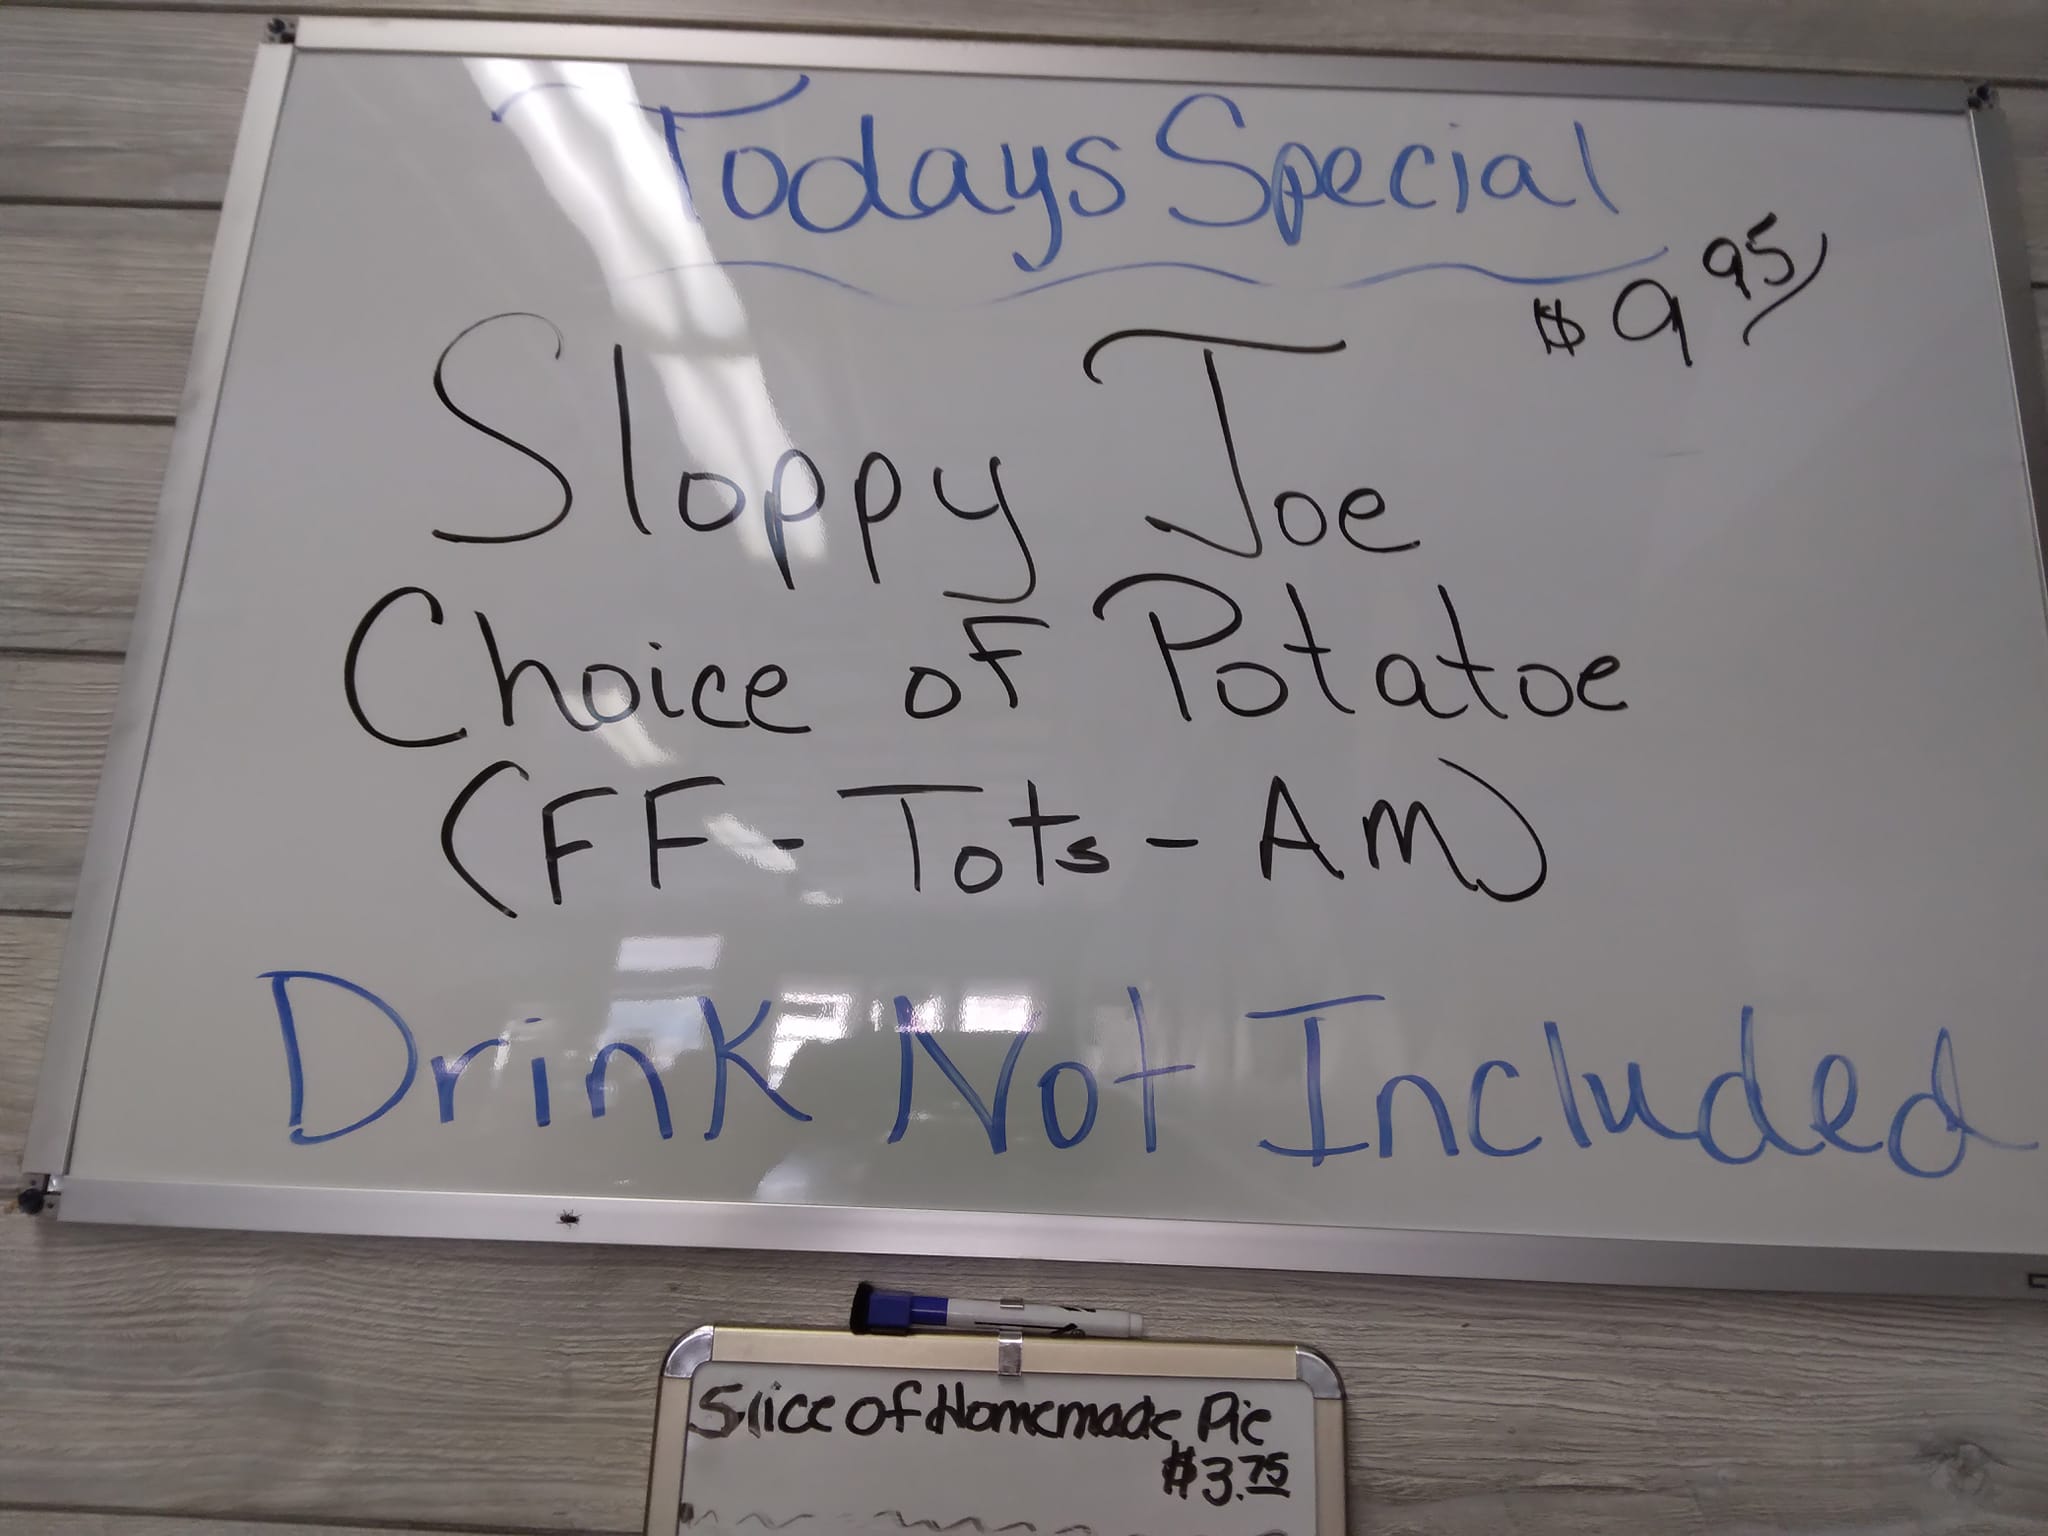 Todays Special
$9.95
Sloppy Joe
Choice of Potatoe
(FF - Tots - AM)
Drink Not Included
Slice of Homemade Pie
$3.75